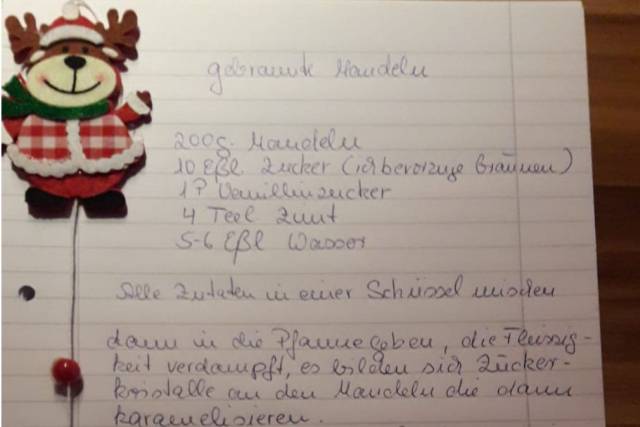 gebrannte Mandeln
200g. Mandeln
10 Eßl Zucker (ich bevorzuge braunen)
1 P Vanillinzucker
4 Teel Zimt
5-6 Eßl Wasser
Alle Zutaten in einer Schüssel mischen
dann in die Pfanne geben, die Flüssig-
keit verdampft, es bilden sich Zucker-
kristalle an den Mandeln die dann
karamelisieren.